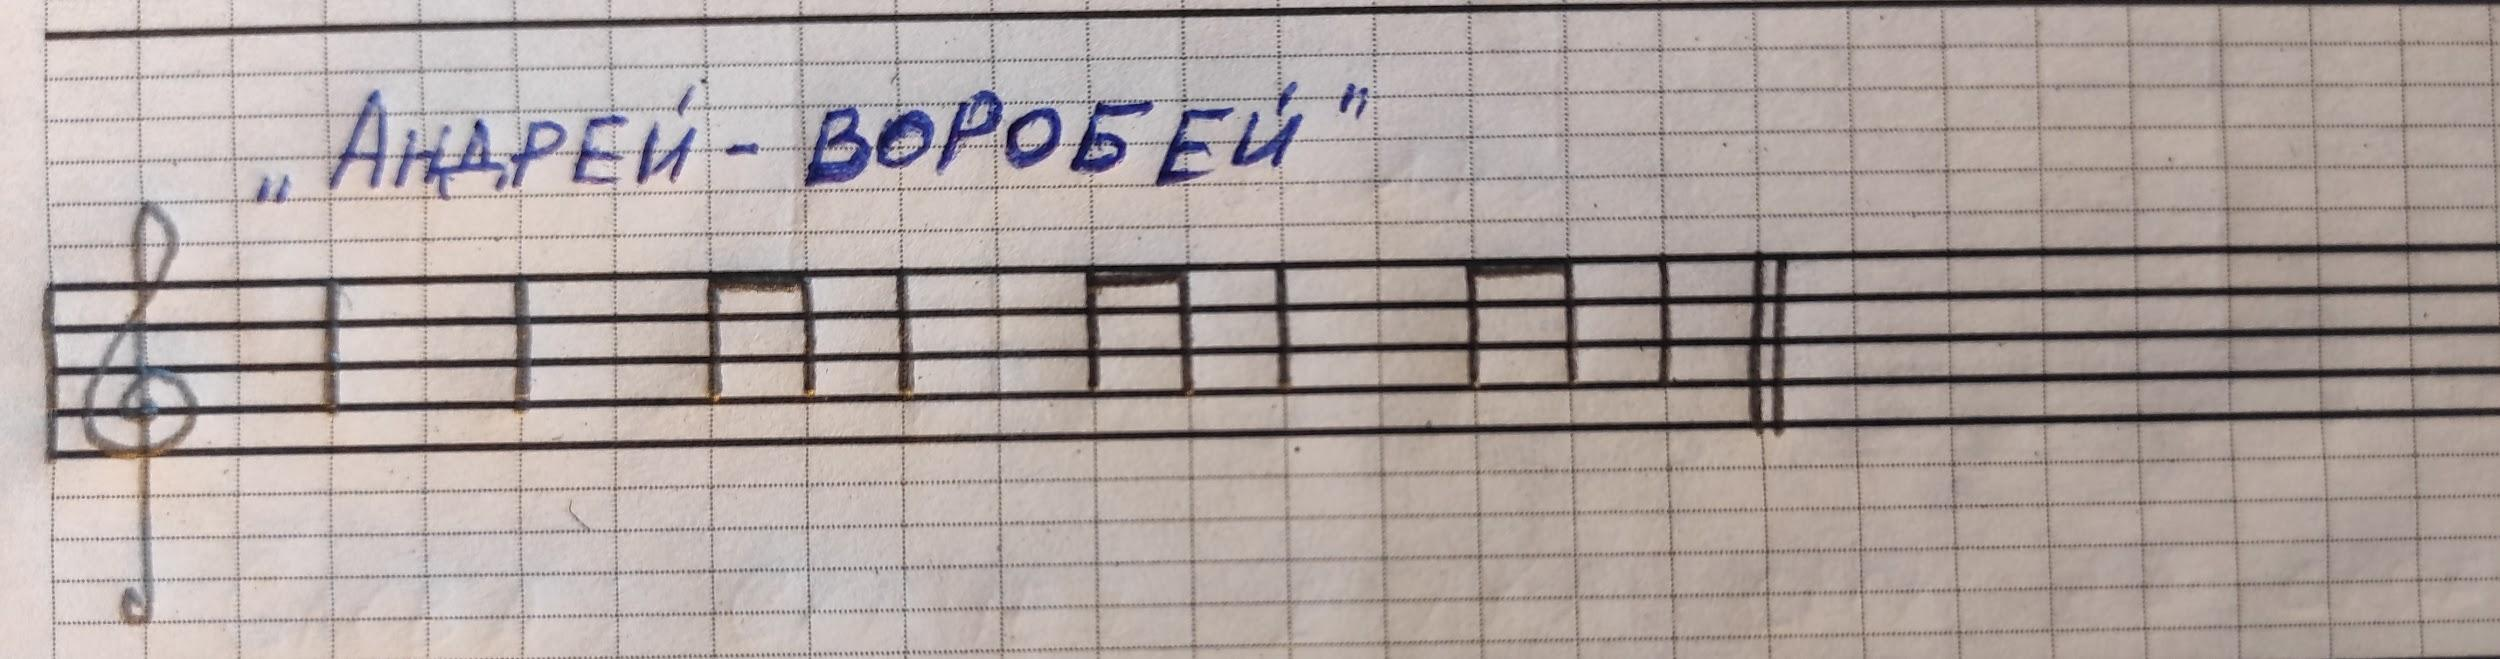 „Андрей - воробей"